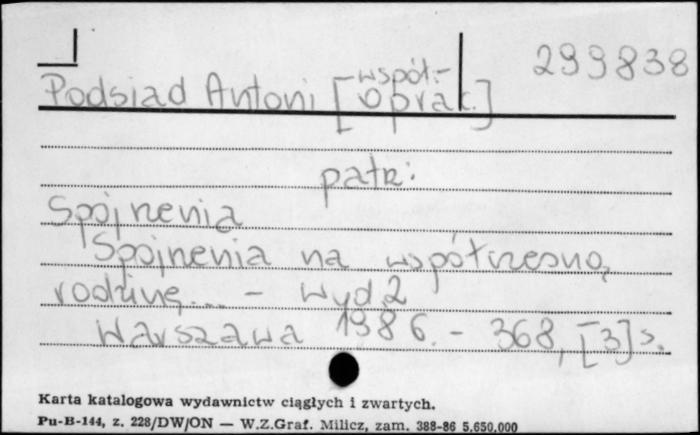 299838
Podsiad Antoni [współ-
oprac.]
patrz:
Spojrzenia
Spojrzenia na współczesną
rodzinę... - Wyd. 2
Warszawa 1986. - 368, [3] s.
Karta katalogowa wydawnictw ciągłych i zwartych.
Pu-B-144, z. 228/DW/ON — W.Z.Graf. Milicz, zam. 388-86 5.650.000